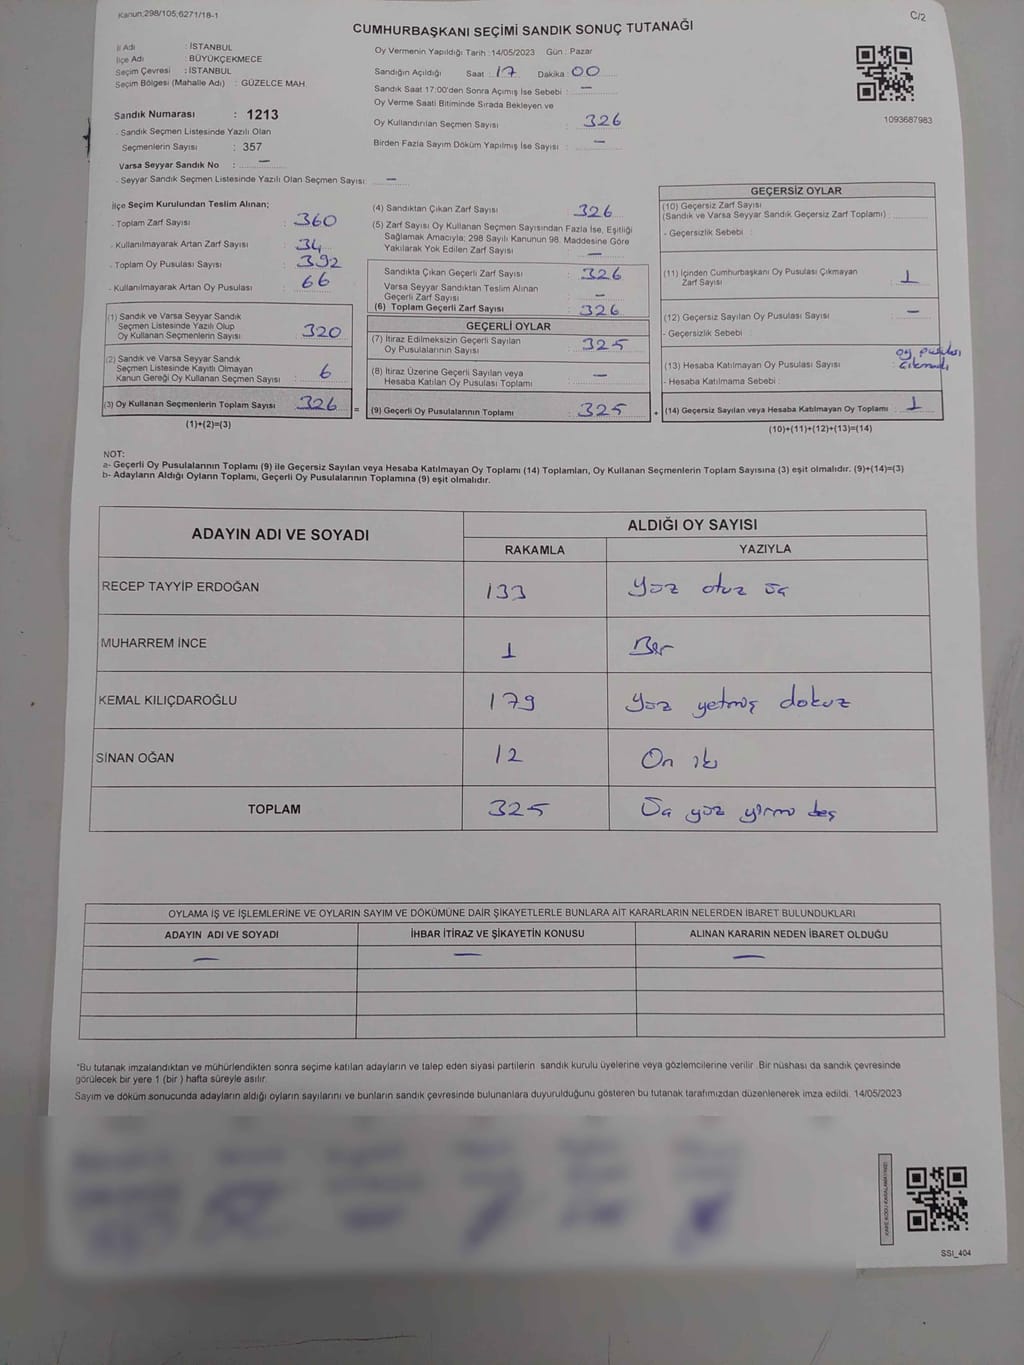 Kanun;298/105;6271/18-1
C/2
CUMHURBAŞKANI SEÇİMİ SANDIK SONUÇ TUTANAĞI
İl Adı : İSTANBUL
İlçe Adı : BÜYÜKÇEKMECE
Seçim Çevresi : İSTANBUL
Seçim Bölgesi (Mahalle Adı) : GÜZELCE MAH
Sandık Numarası : 1213
- Sandık Seçmen Listesinde Yazılı Olan
Seçmenlerin Sayısı : 357
Varsa Seyyar Sandık No : —
- Seyyar Sandık Seçmen Listesinde Yazılı Olan Seçmen Sayısı: —
Oy Vermenin Yapıldığı Tarih :14/05/2023 Gün : Pazar
Sandığın Açıldığı Saat : 17 Dakika 00
Sandık Saat 17:00'den Sonra Açımış İse Sebebi : —
Oy Verme Saati Bitiminde Sırada Bekleyen ve
Oy Kullandırılan Seçmen Sayısı : 326
Birden Fazla Sayım Döküm Yapılmış İse Sayısı : —
1093687983
İlçe Seçim Kurulundan Teslim Alınan;
- Toplam Zarf Sayısı : 360
- Kullanılmayarak Artan Zarf Sayısı : 34
- Toplam Oy Pusulası Sayısı : 392
- Kullanılmayarak Artan Oy Pusulası : 66
(1) Sandık ve Varsa Seyyar Sandık
Seçmen Listesinde Yazılı Olup
Oy Kullanan Seçmenlerin Sayısı : 320
(2) Sandık ve Varsa Seyyar Sandık
Seçmen Listesinde Kayıtlı Olmayan
Kanun Gereği Oy Kullanan Seçmen Sayısı : 6
(3) Oy Kullanan Seçmenlerin Toplam Sayısı : 326 =
(1)+(2)=(3)
(4) Sandıktan Çıkan Zarf Sayısı : 326
(5) Zarf Sayısı Oy Kullanan Seçmen Sayısından Fazla İse, Eşitliği
Sağlamak Amacıyla; 298 Sayılı Kanunun 98. Maddesine Göre
Yakılarak Yok Edilen Zarf Sayısı : —
Sandıkta Çıkan Geçerli Zarf Sayısı : 326
Varsa Seyyar Sandıktan Teslim Alınan
Geçerli Zarf Sayısı : —
(6) Toplam Geçerli Zarf Sayısı : 326
GEÇERLİ OYLAR
(7) İtiraz Edilmeksizin Geçerli Sayılan
Oy Pusulalarının Sayısı : 325
(8) İtiraz Üzerine Geçerli Sayılan veya
Hesaba Katılan Oy Pusulası Toplamı : —
(9) Geçerli Oy Pusulalarının Toplamı : 325 +
GEÇERSİZ OYLAR
(10) Geçersiz Zarf Sayısı
(Sandık ve Varsa Seyyar Sandık Geçersiz Zarf Toplamı) :
- Geçersizlik Sebebi :
(11) İçinden Cumhurbaşkanı Oy Pusulası Çıkmayan
Zarf Sayısı : 1
(12) Geçersiz Sayılan Oy Pusulası Sayısı : —
- Geçersizlik Sebebi :
(13) Hesaba Katılmayan Oy Pusulası Sayısı : oy pusulası
çıkmadı
- Hesaba Katılmama Sebebi :
(14) Geçersiz Sayılan veya Hesaba Katılmayan Oy Toplamı : 1
(10)+(11)+(12)+(13)=(14)
NOT:
a- Geçerli Oy Pusulalarının Toplamı (9) ile Geçersiz Sayılan veya Hesaba Katılmayan Oy Toplamı (14) Toplamları, Oy Kullanan Seçmenlerin Toplam Sayısına (3) eşit olmalıdır. (9)+(14)=(3)
b- Adayların Aldığı Oyların Toplamı, Geçerli Oy Pusulalarının Toplamına (9) eşit olmalıdır.
ADAYIN ADI VE SOYADI
ALDIĞI OY SAYISI
RAKAMLA YAZIYLA
RECEP TAYYİP ERDOĞAN 133 Yüz otuz üç
MUHARREM İNCE 1 Bir
KEMAL KILIÇDAROĞLU 179 Yüz yetmiş dokuz
SİNAN OĞAN 12 On iki
TOPLAM 325 Üç yüz yirmi beş
OYLAMA İŞ VE İŞLEMLERİNE VE OYLARIN SAYIM VE DÖKÜMÜNE DAİR ŞİKAYETLERLE BUNLARA AİT KARARLARIN NELERDEN İBARET BULUNDUKLARI
ADAYIN ADI VE SOYADI İHBAR İTİRAZ VE ŞİKAYETİN KONUSU ALINAN KARARIN NEDEN İBARET OLDUĞU
— — —
*Bu tutanak imzalandıktan ve mühürlendikten sonra seçime katılan adayların ve talep eden siyasi partilerin sandık kurulu üyelerine veya gözlemcilerine verilir. Bir nüshası da sandık çevresinde
görülecek bir yere 1 (bir ) hafta süreyle asılır.
Sayım ve döküm sonucunda adayların aldığı oyların sayılarını ve bunların sandık çevresinde bulunanlara duyurulduğunu gösteren bu tutanak tarafımızdan düzenlenerek imza edildi. 14/05/2023
KARE KODU KARALAMAYINIZ!
SSI_404